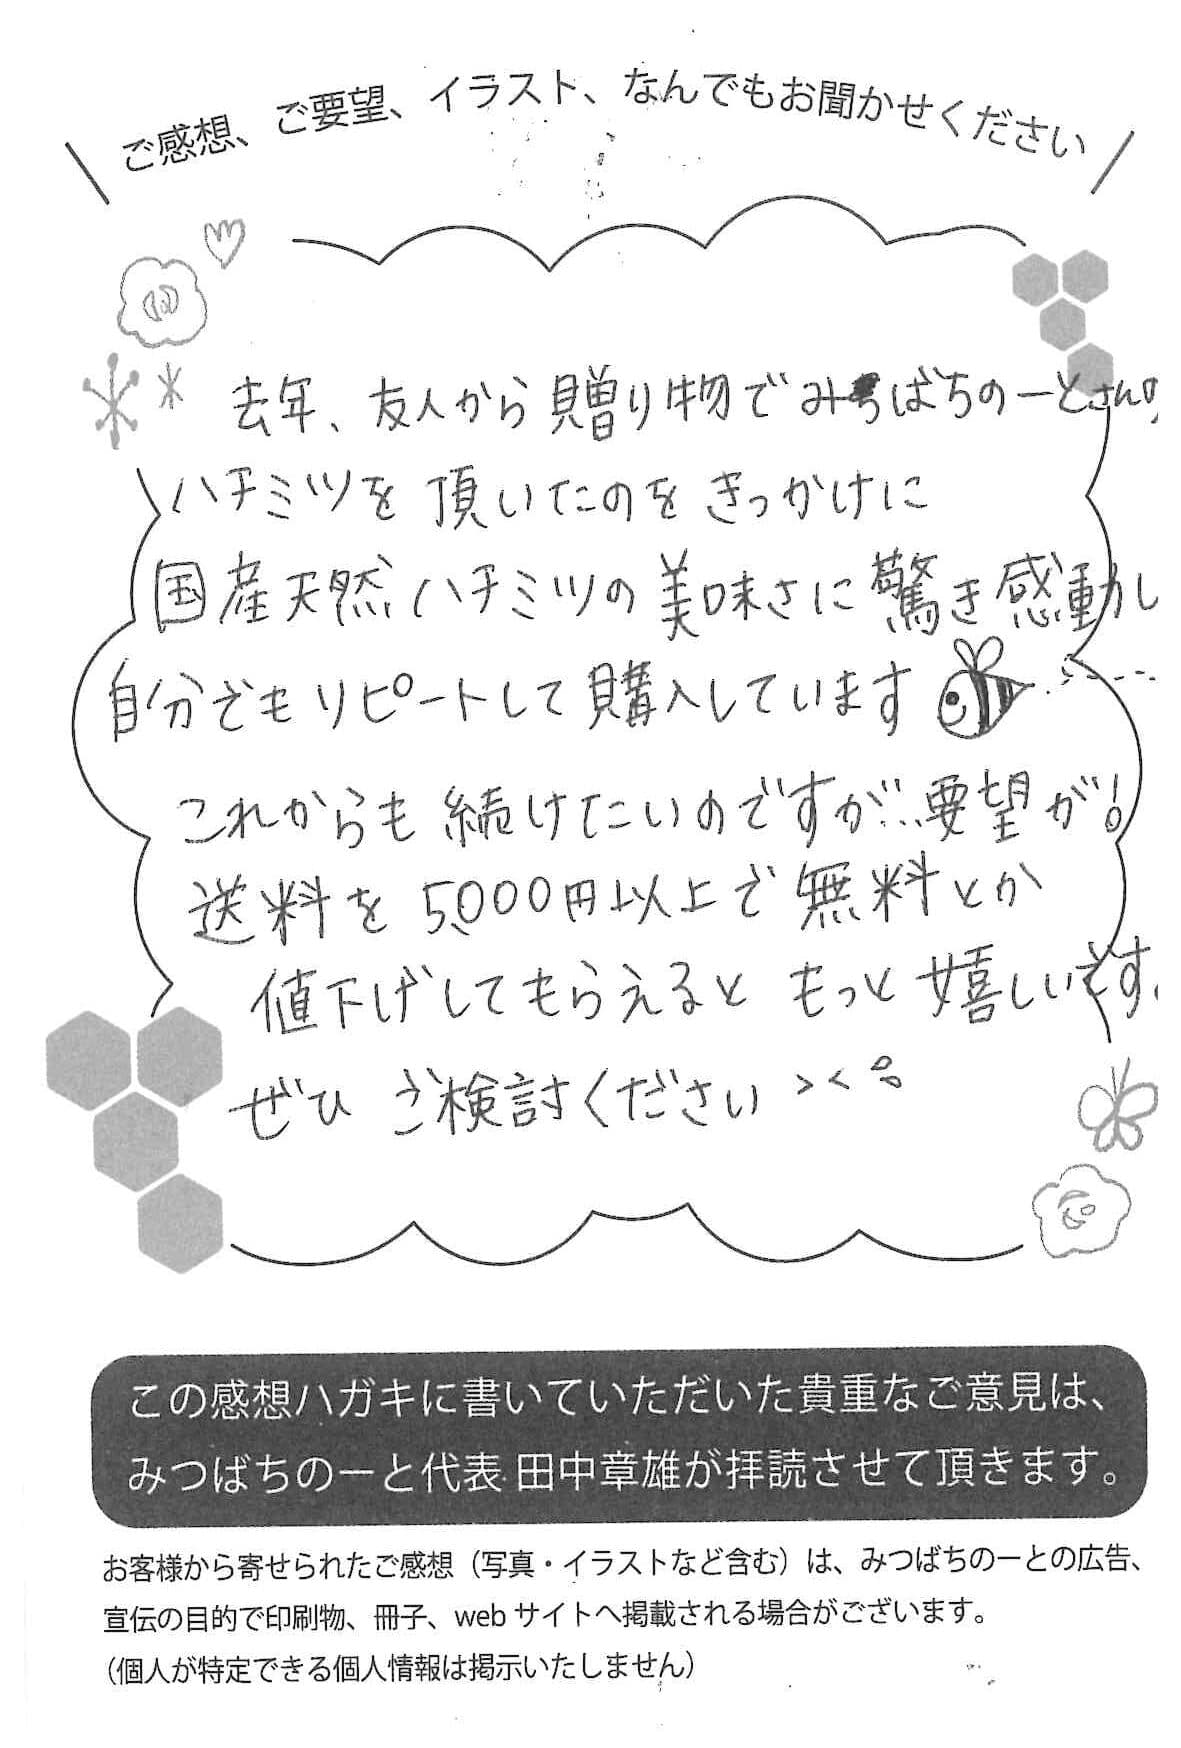 ご感想、ご要望、イラスト、なんでもお聞かせください
去年、友人から贈り物でみつばちのーとさんの
ハチミツを頂いたのをきっかけに
国産天然ハチミツの美味さに驚き感動し
自分でもリピートして購入しています
これからも続けたいのですが…要望が!
送料を5,000円以上で無料とか
値下げしてもらえるともっと嬉しいです。
ぜひご検討ください ><
この感想ハガキに書いていただいた貴重なご意見は、
みつばちのーと代表 田中章雄が拝読させて頂きます。
お客様から寄せられたご感想（写真・イラストなど含む）は、みつばちのーとの広告、
宣伝の目的で印刷物、冊子、web サイトへ掲載される場合がございます。
（個人が特定できる個人情報は掲示いたしません）